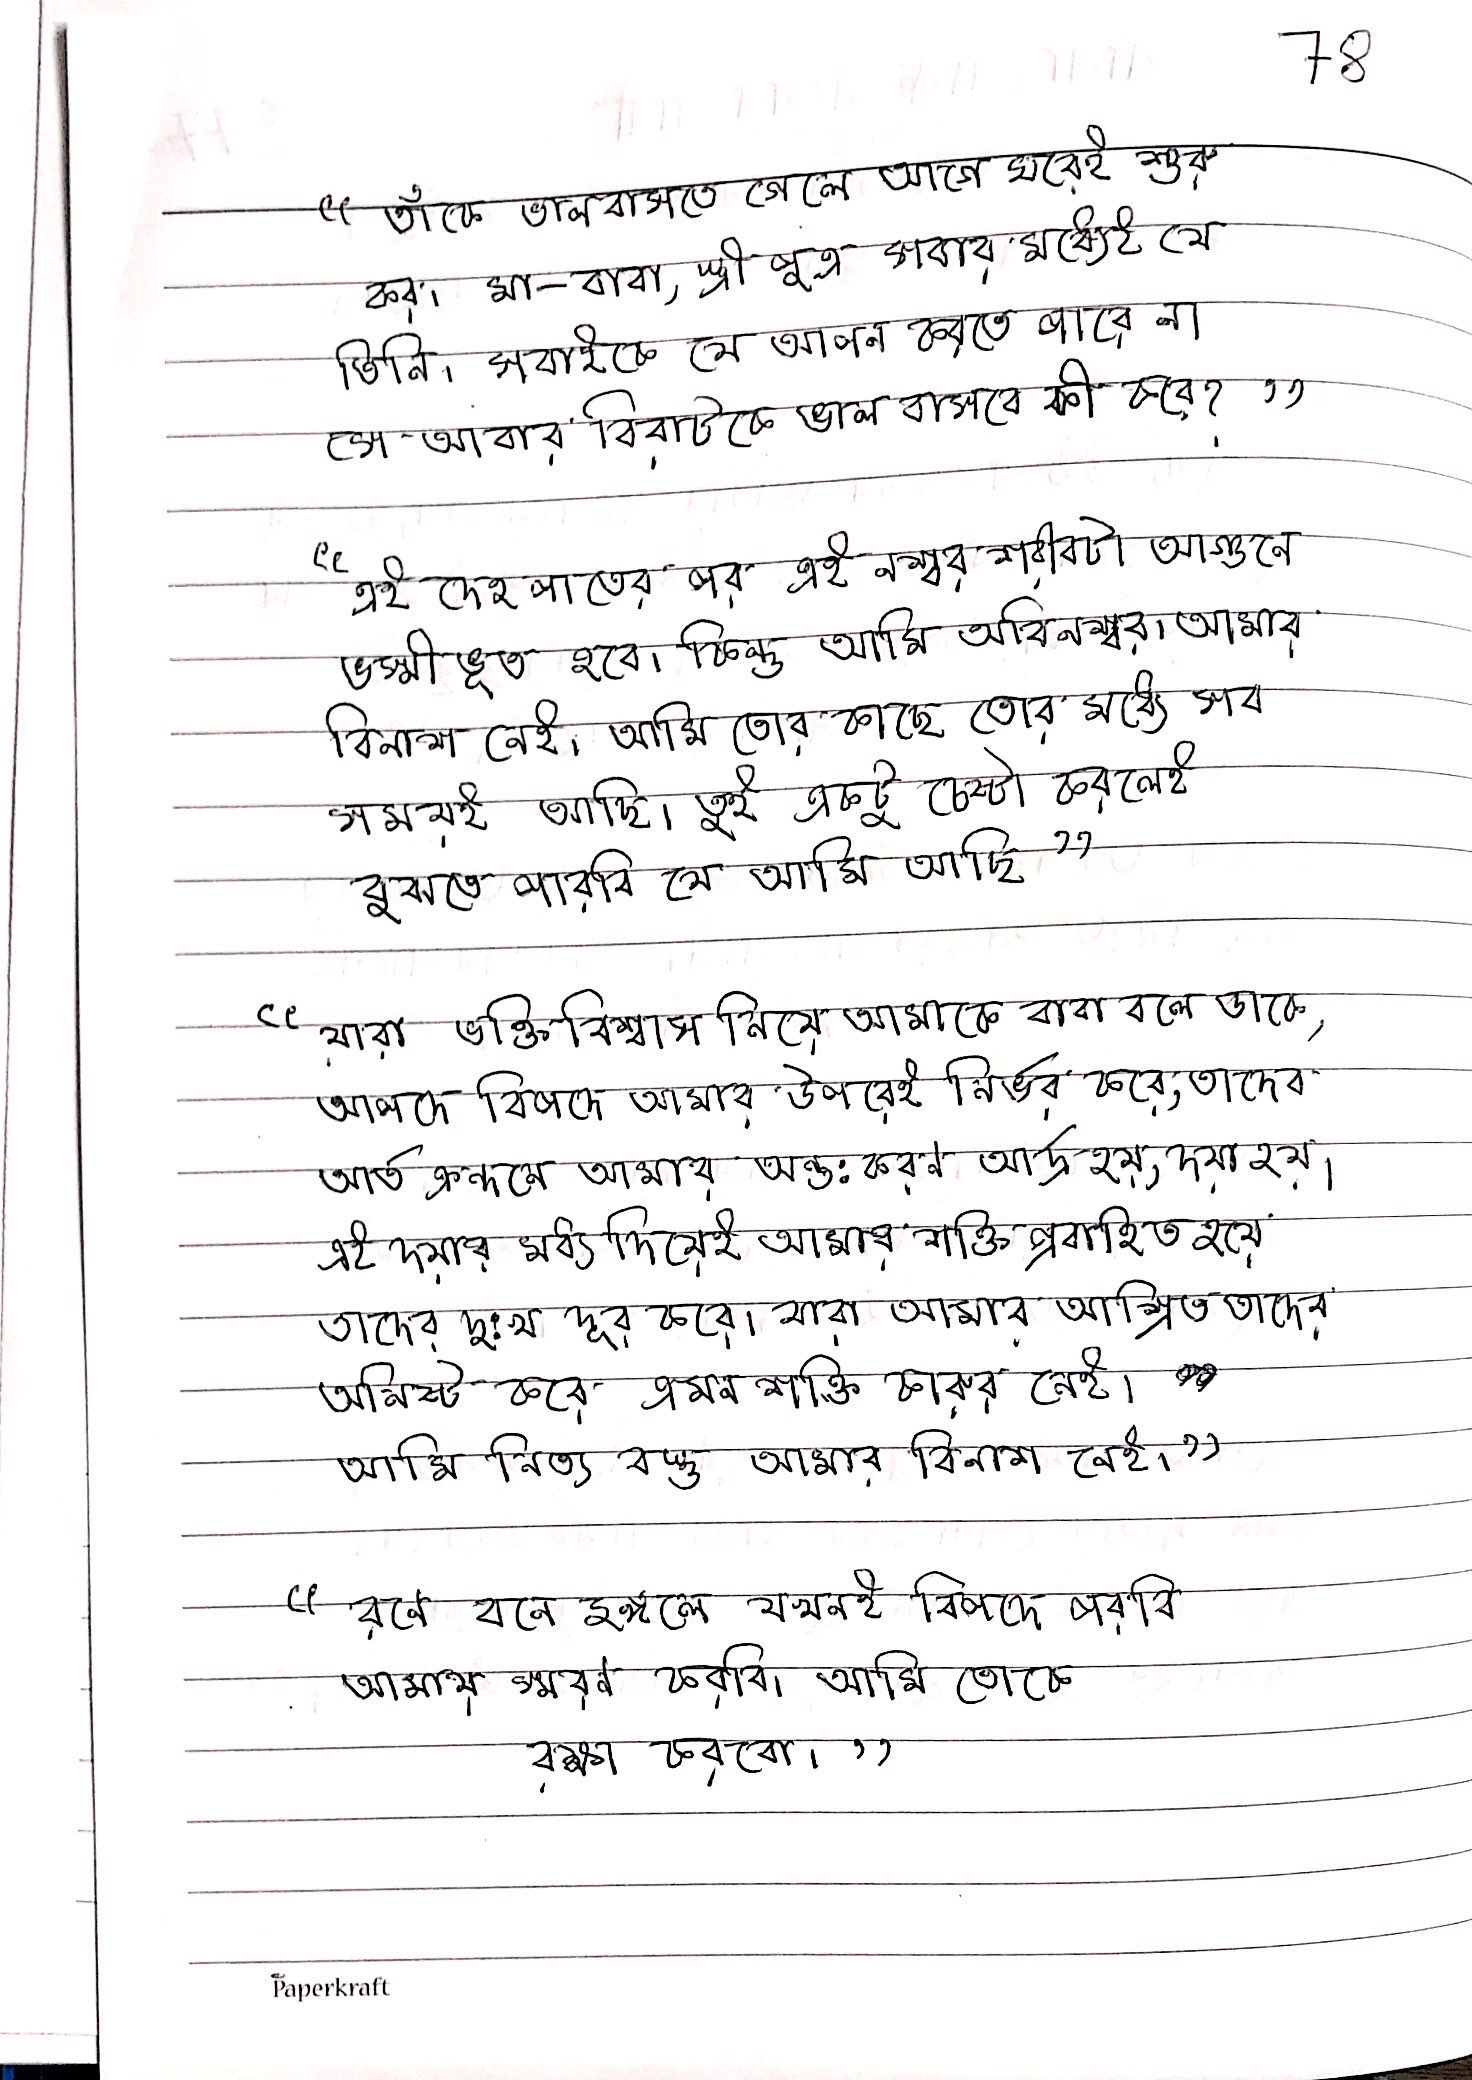 78
“ তাঁকে ভালবাসতে গেলে আগে ঘরেই শুরু
কর। মা-বাবা, স্ত্রী পুত্র সবার মধ্যেই যে
তিনি। সবাইকে যে আপন করতে পারে না
সে আবার বিরাটকে ভাল বাসবে কী করে? ”
“ এই দেহ পাতের পর এই নশ্বর শরীরটা আগুনে
ভস্মীভূত হবে। কিন্তু আমি অবিনশ্বর। আমার
বিনাশ নেই। আমি তোর কাছে তোর মধ্যে সব
সময়ই আছি। তুই একটু চেষ্টা করলেই
বুঝতে পারবি যে আমি আছি ”
“ যারা ভক্তি বিশ্বাস নিয়ে আমাকে বাবা বলে ডাকে,
আপদে বিপদে আমার উপরেই নির্ভর করে, তাদের
আর্ত ক্রন্দনে আমার অন্তঃকরণ আর্দ্র হয়, দয়া হয়।
এই দয়ার মধ্য দিয়েই আমার শক্তি প্রবাহিত হয়ে
তাদের দুঃখ দূর করে। যারা আমার আশ্রিত তাদের
অনিষ্ট করে এমন শক্তি কারুর নেই।
আমি নিত্য বস্তু আমার বিনাশ নেই। ”
“ রণে বনে জঙ্গলে যখনই বিপদে পরবি
আমায় স্মরণ করবি। আমি তোকে
রক্ষা করবো। ”
Paperkraft